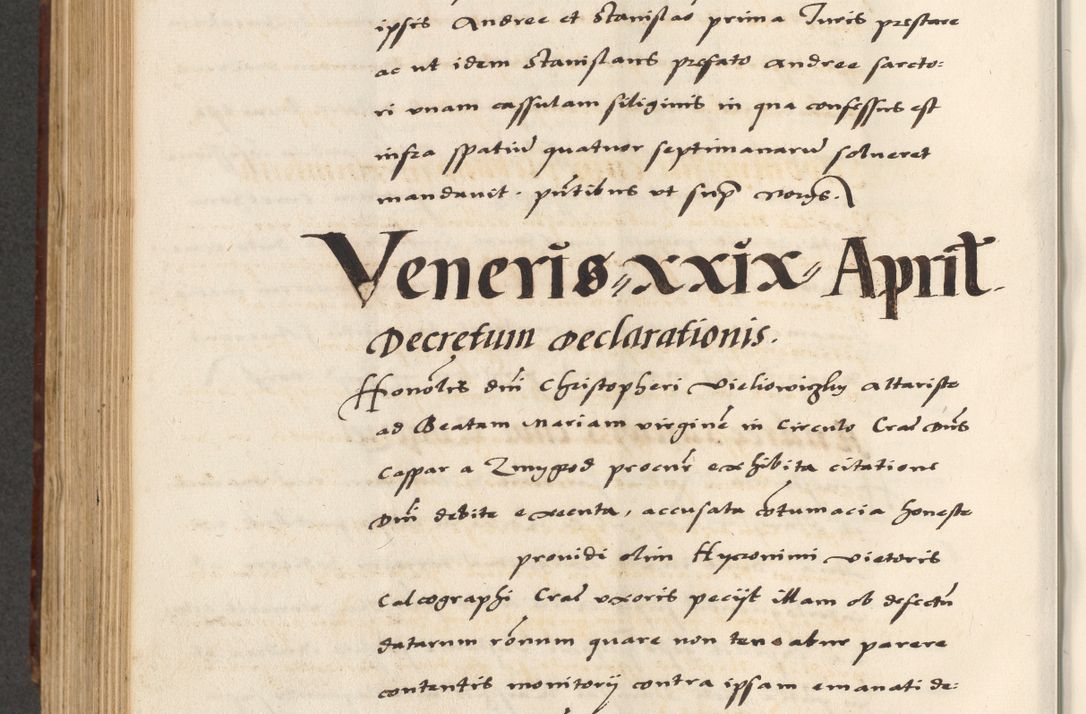 ipsis Andree et Stanislao prima Juris prestare
ac ut idem Stanislaus prefato Andree sarcto:
ri unam cassulam siliginis in qua confessus est
infra spatiū quatuor septimanarū solueret
mandauit. pn̄tibus ut sup̄
Veneris xxix April
Decretum Declarationis.
Honol̄is dn̄i Christopheri Altariste
ad Beatam Mariam virginē in Circulo Crac̄ Dn̄s
Caspar a Zmygod procur̄ exhibita citatione
Dn̄i debite executa, accusata cōtumacia honeste
prouidi olim Hyeronimi Vietoris
Calcographi Crac̄ uxoris peciit illam ob defectū
datarum rōnum quare non teneatur parere
contentis monitorij contra ipsam emanati de: